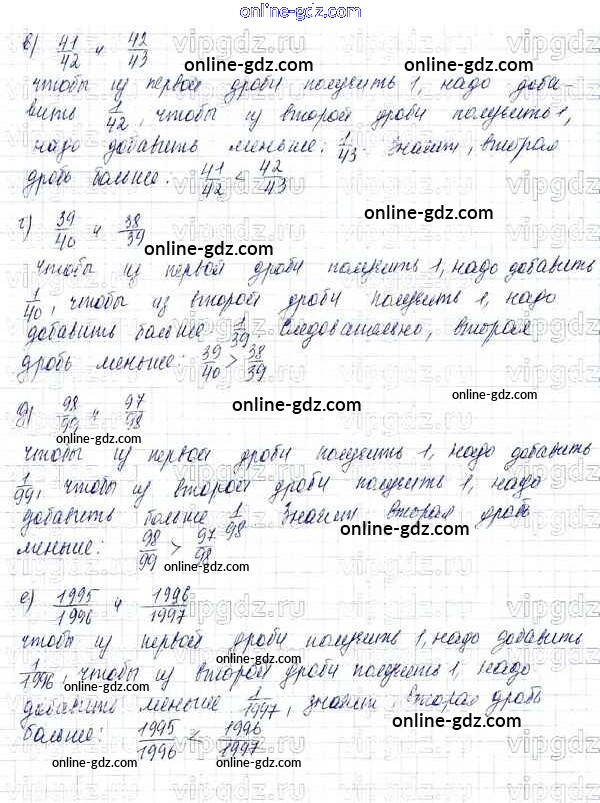 online-gdz.com
в) 41/42 и 42/43
online-gdz.com
чтобы из первой дроби получить 1, надо доба-
вить 1/42, чтобы из второй дроби получить 1,
надо добавить меньше: 1/43. Значит, вторая
дробь больше: 41/42 < 42/43
online-gdz.com
г) 39/40 и 38/39
online-gdz.com
чтобы из первой дроби получить 1, надо добавить
1/40, чтобы из второй дроби получить 1, надо
добавить больше 1/39. Следовательно, вторая
дробь меньше: 39/40 > 38/39
online-gdz.com
online-gdz.com
д) 98/99 и 97/98
online-gdz.com
чтобы из первой дроби получить 1, надо добавить
1/99, чтобы из второй дроби получить 1, надо
online-gdz.com
добавить больше 1/98. Значит вторая дробь
меньше: 98/99 > 97/98
online-gdz.com
online-gdz.com
е) 1995/1996 и 1996/1997
online-gdz.com
чтобы из первой дроби получить 1, надо добавить
1/1996, чтобы из второй дроби получить 1, надо
online-gdz.com
online-gdz.com
добавить меньше 1/1997, значит вторая дробь
больше: 1995/1996 < 1996/1997
online-gdz.com
online-gdz.com
online-gdz.com
vipgdz.ru